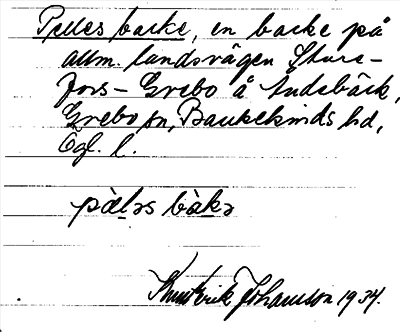 Pelles backe, en backe på
allm. landsvägen Sture-
fors - Grebo å Åndebäck,
Grebo sn, Bankekinds hd,
Ögl. l.
pæ̀ləs bàkə
Knut Erik Johansson 1934.